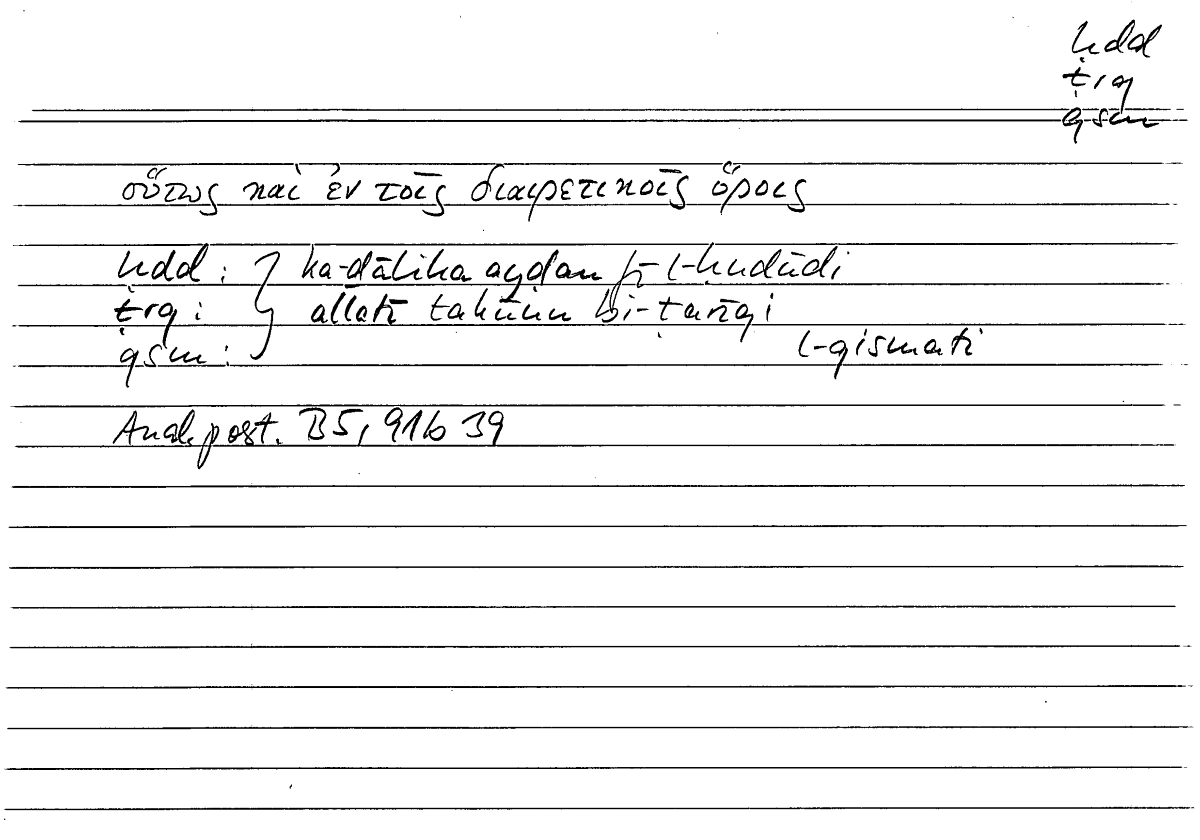 ḥdd
ṭrq
qsm
οὕτως καὶ ἐν τοῖς διαιρετικοῖς ὅροις
ḥdd : } ka-ḏālika ayḍan fī l-ḥudūdi
ṭrq : allatī takūnu bi-ṭarīqi
qsm : l-qismati
Anal. post. B5, 91b 39